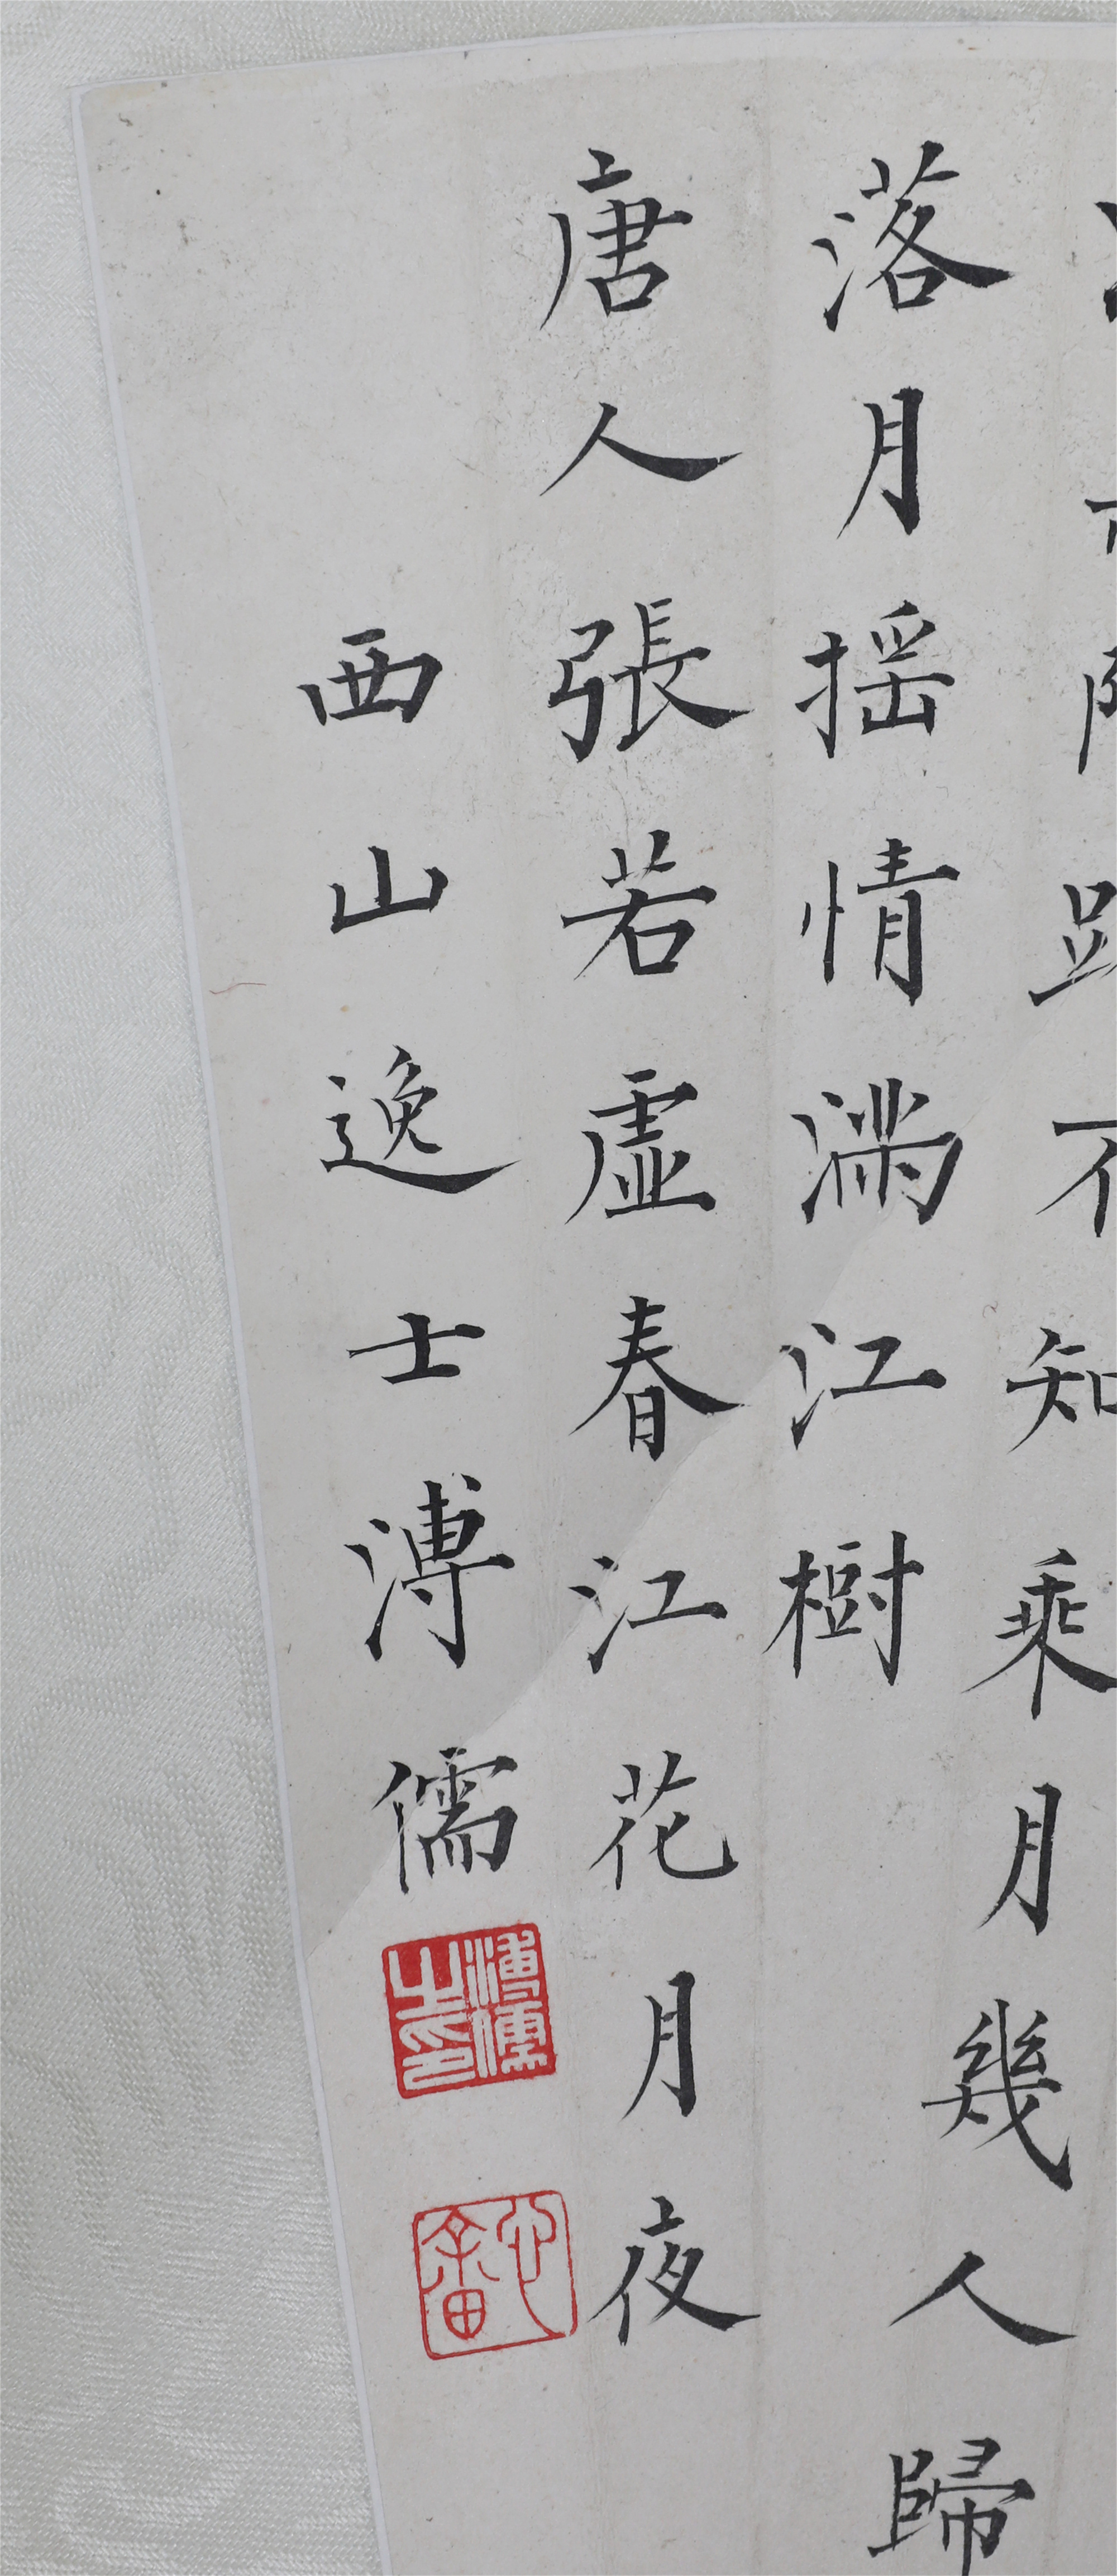 路不知乘月幾人歸
落月揺情滿江樹
唐人張若虛春江花月夜
西山逸士溥儒
溥儒之印
心畬